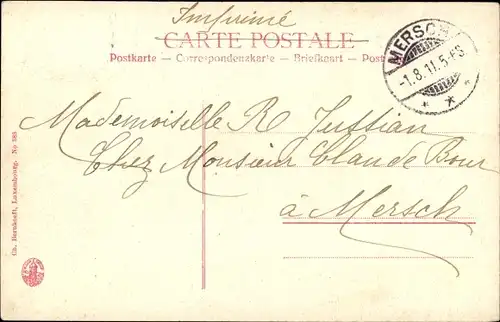 Imprimé
CARTE POSTALE
Postkarte – Correspondenzkarte – Briefkaart – Post
MERSCH
-1.8.11.5-6S
* * *
Mademoiselle R Justian
Chez Monsieur Claude Bour
à Mersch
Ch. Bernhoeft, Luxembourg. No 583